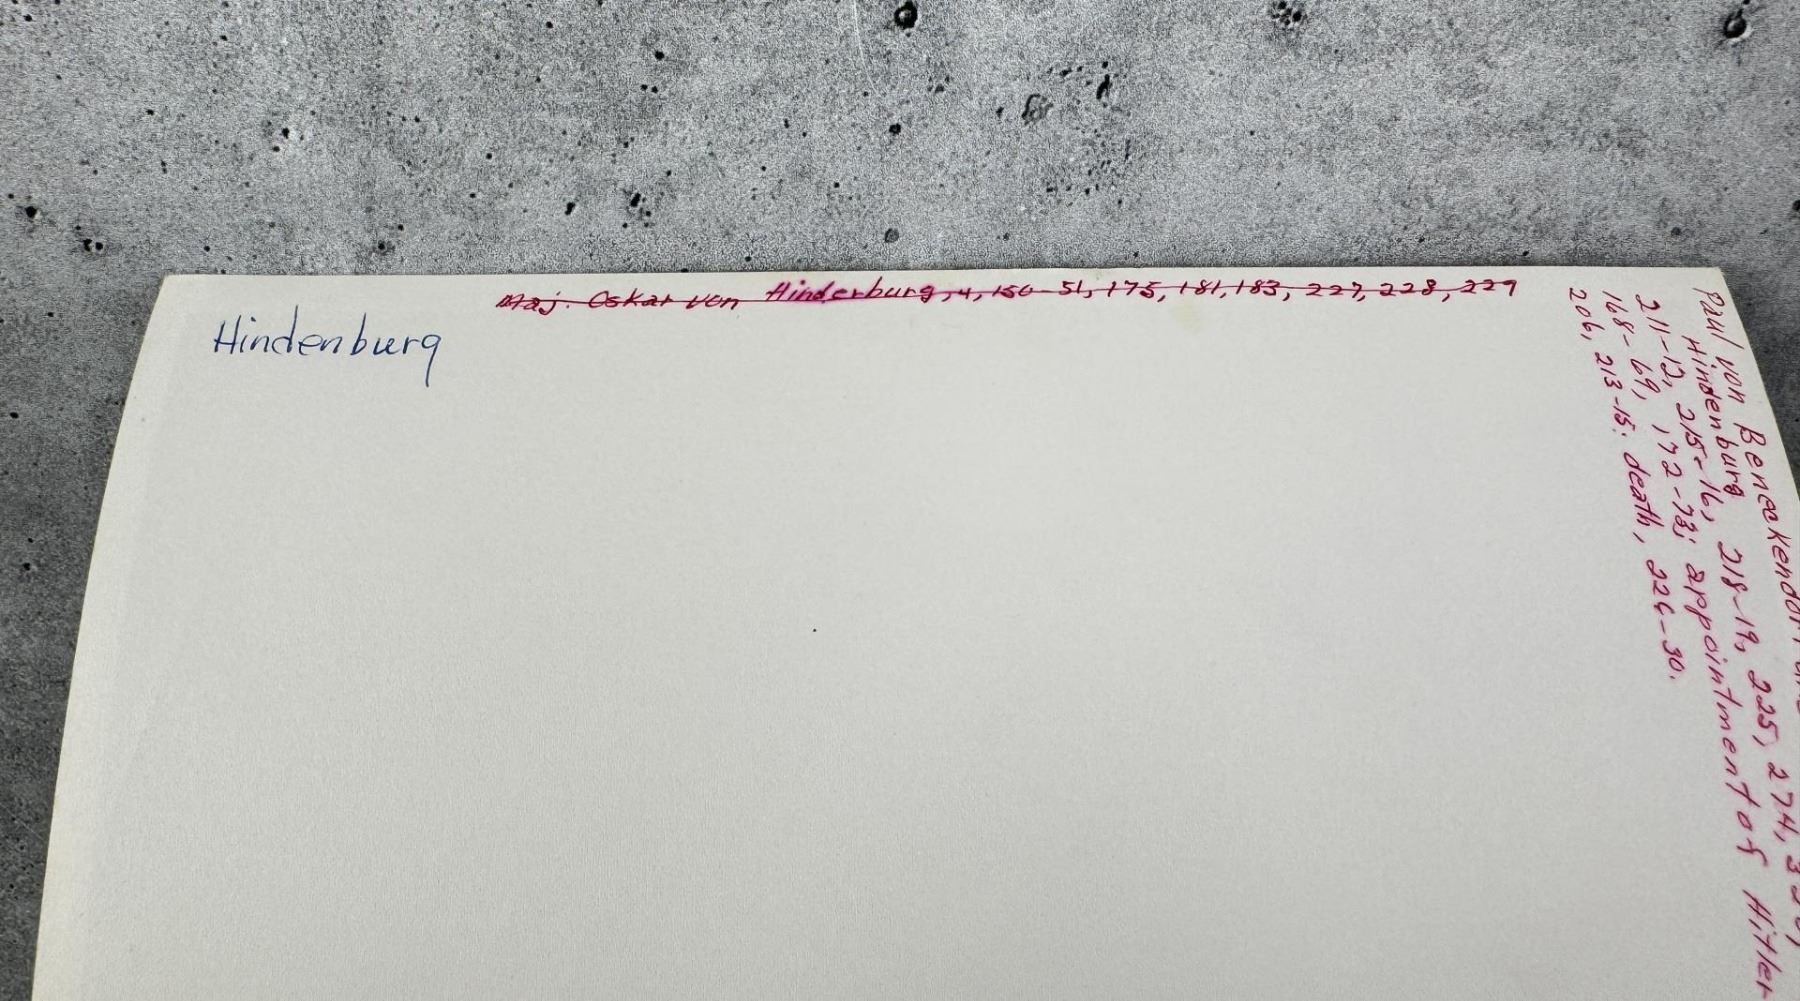 Maj. Oskar von Hindenburg, 4, 150-51, 175, 181, 183, 227, 228, 229
Hindenburg
Paul von Beneckendorf
Hindenburg 218-19, 225, 274,
211-12, 215-16, appointment of Hitler
168-69, 172-73;
206, 213-15: death, 226-30.